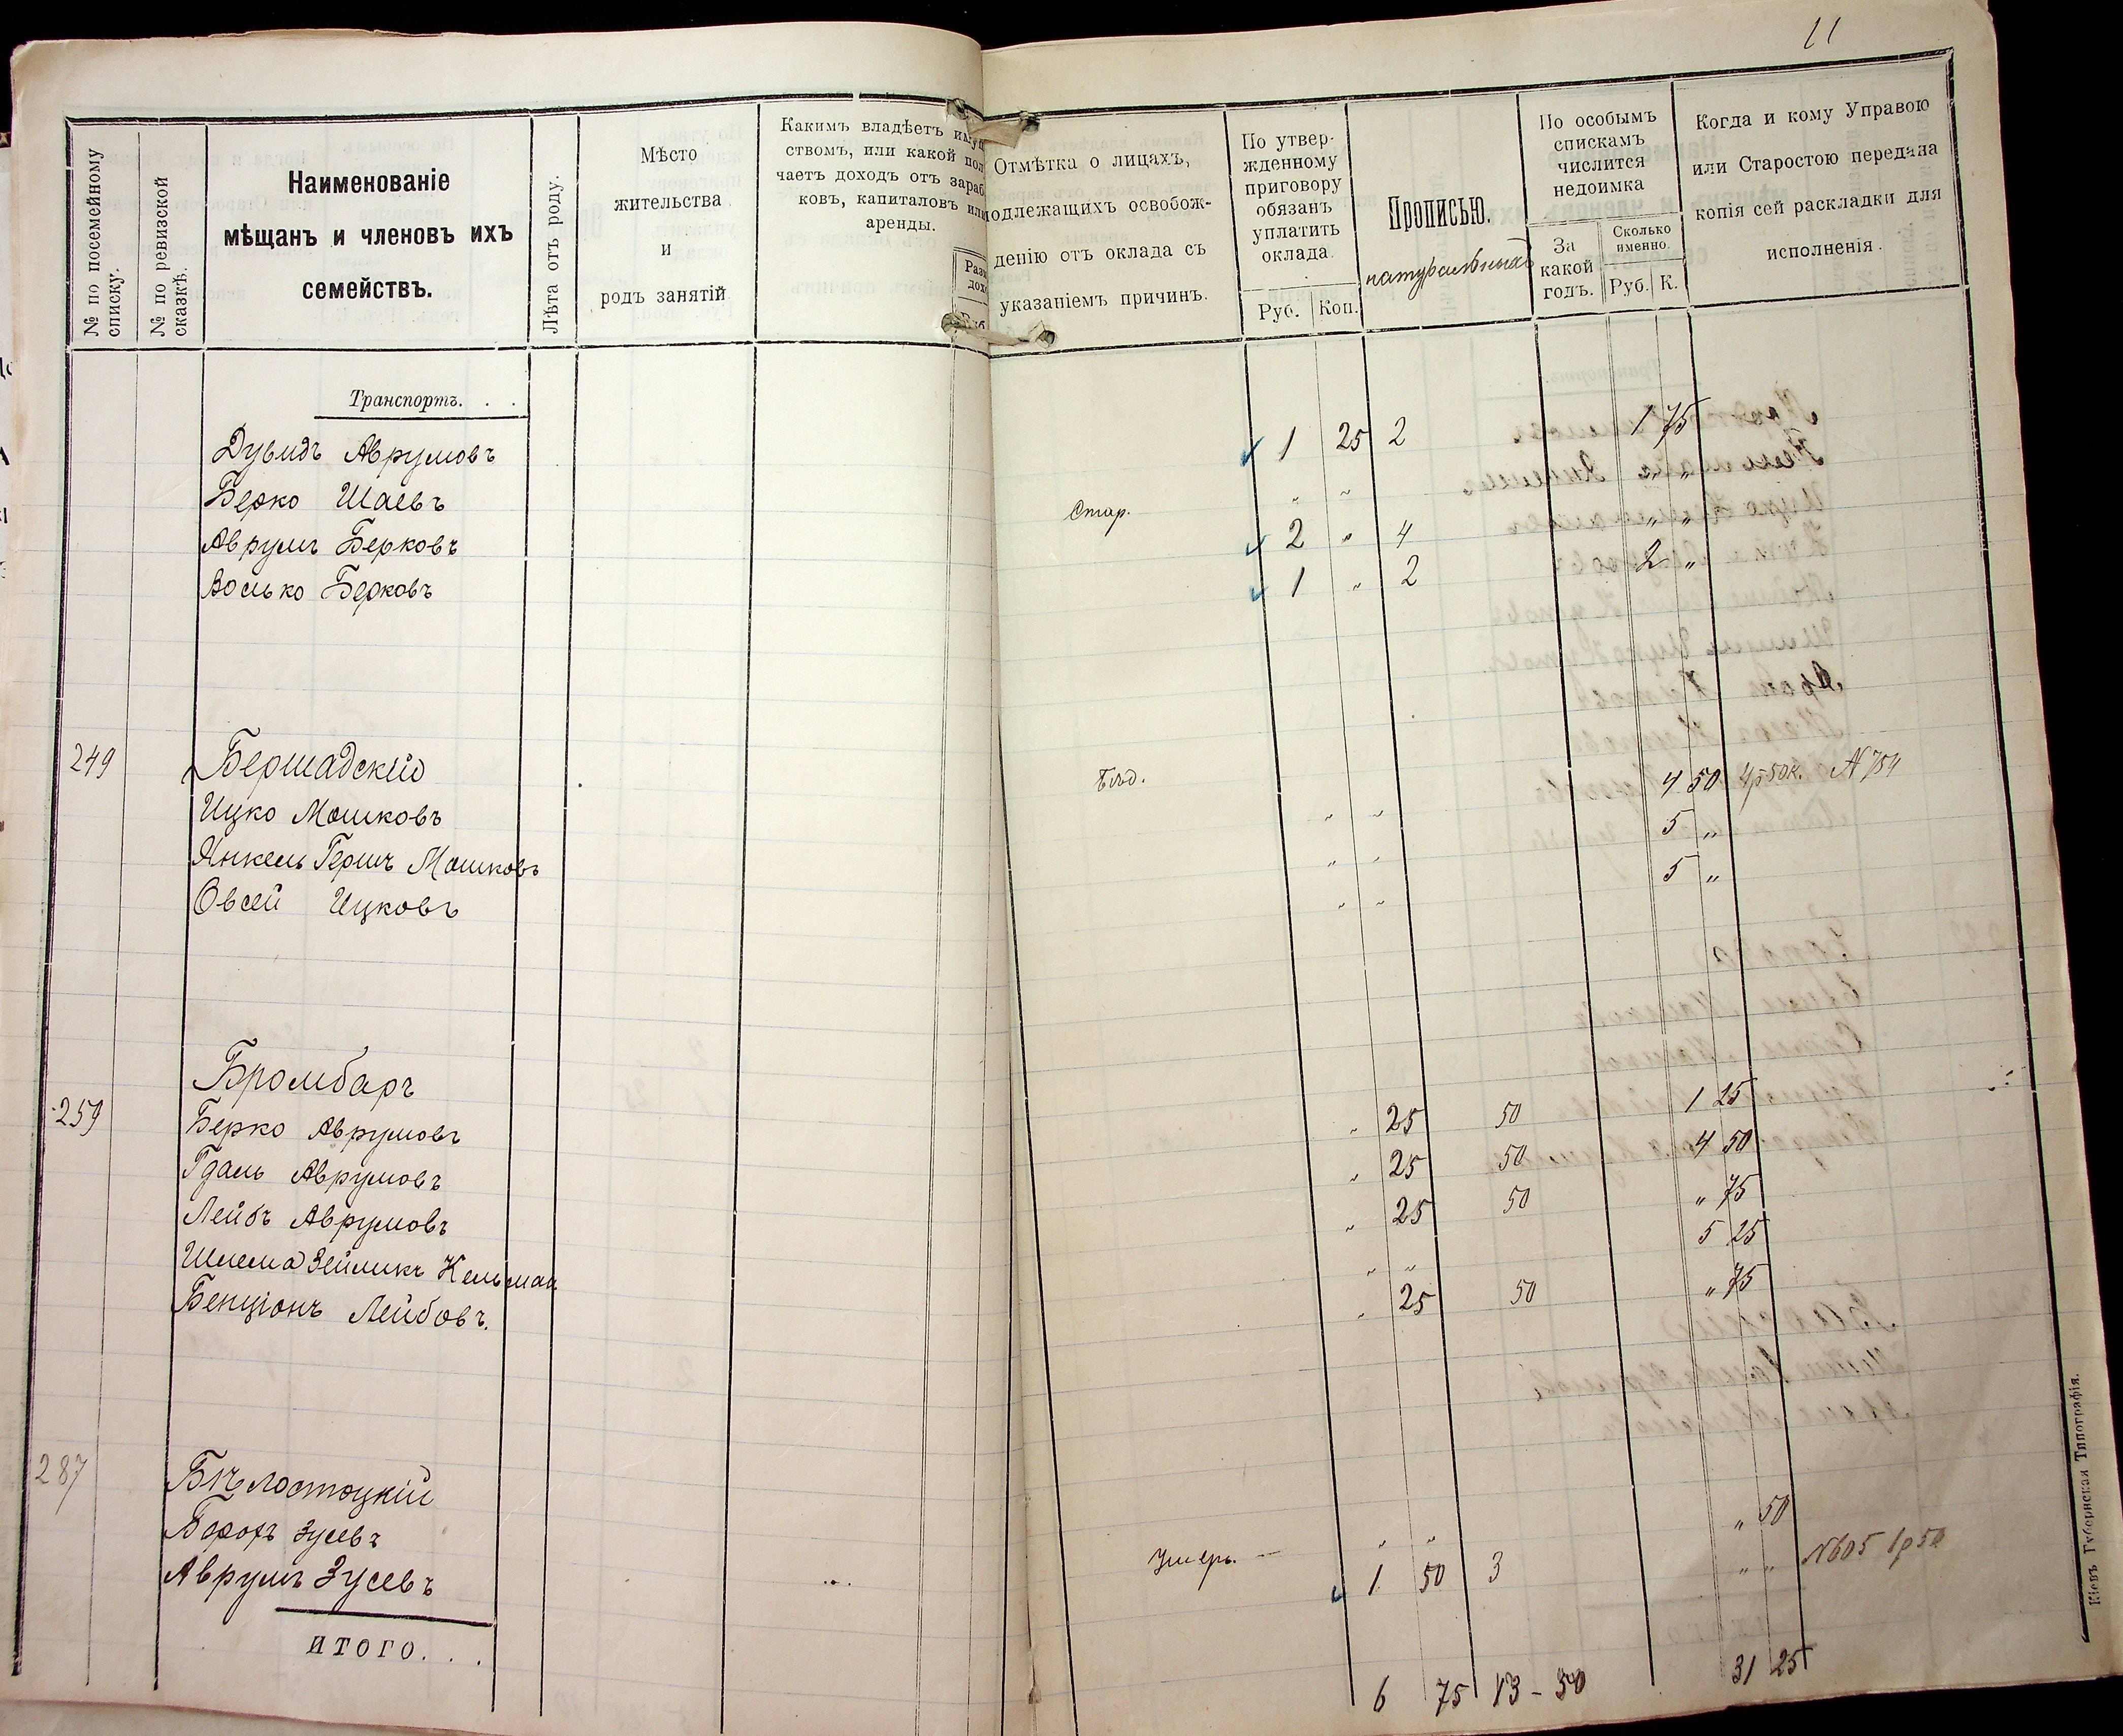 11
№ по посемейному списку.
№ по ревизской сказкѣ.
Наименованіе
мѣщанъ и членовъ ихъ
семействъ.
Лѣта отъ роду.
Мѣсто
жительства
и
родъ занятій
Какимъ владѣетъ иму
ствомъ, или какой пол
чаетъ доходъ отъ зараб
ковъ, капиталовъ или
аренды.
Отмѣтка о лицахъ,
одлежащихъ освобож-
денію отъ оклада съ
указаніемъ причинъ.
По утвер-
жденному
приговору
обязанъ
уплатить
оклада.
Руб. Коп.
Прописью.
натуральныхъ
По особымъ
спискамъ
числится
недоимка
За
какой
годъ.
Сколько
именно.
Руб. К.
Когда и кому Управою
или Старостою передана
копія сей раскладки для
исполненія.
Транспортъ. . .
Дувидъ Аврумовъ 1 25 2 1 75
Берко Шаевъ Стар. " " " "
Аврумъ Берковъ 2 " 4 " "
Волько Берковъ 1 " 2 2 "
249 Бершадскій Бѣд.
Ицко Мошковъ " " 4 50 4р50к. № 754
Янкель Гершъ Мошковъ " " 5 "
Овсей Ицковъ " " 5 "
Бромбаръ
259 Берко Аврумовъ " 25 50 1 25
Гдаль Аврумовъ " 25 50 4 50
Лейбъ Аврумовъ " 25 50 " 75
Шлема Зейликъ Кельман " " 5 25
Бенціонъ Лейбовъ. " 25 50 " 75
287 Бѣлостоцкій
Борохъ Зусевъ Умеръ. — " " " 50
Аврумъ Зусевъ 1 50 3 " " №605 1р50
ИТОГО. . . 6 75 13 - 50 31 25
Кіевъ Губернская Типографія.